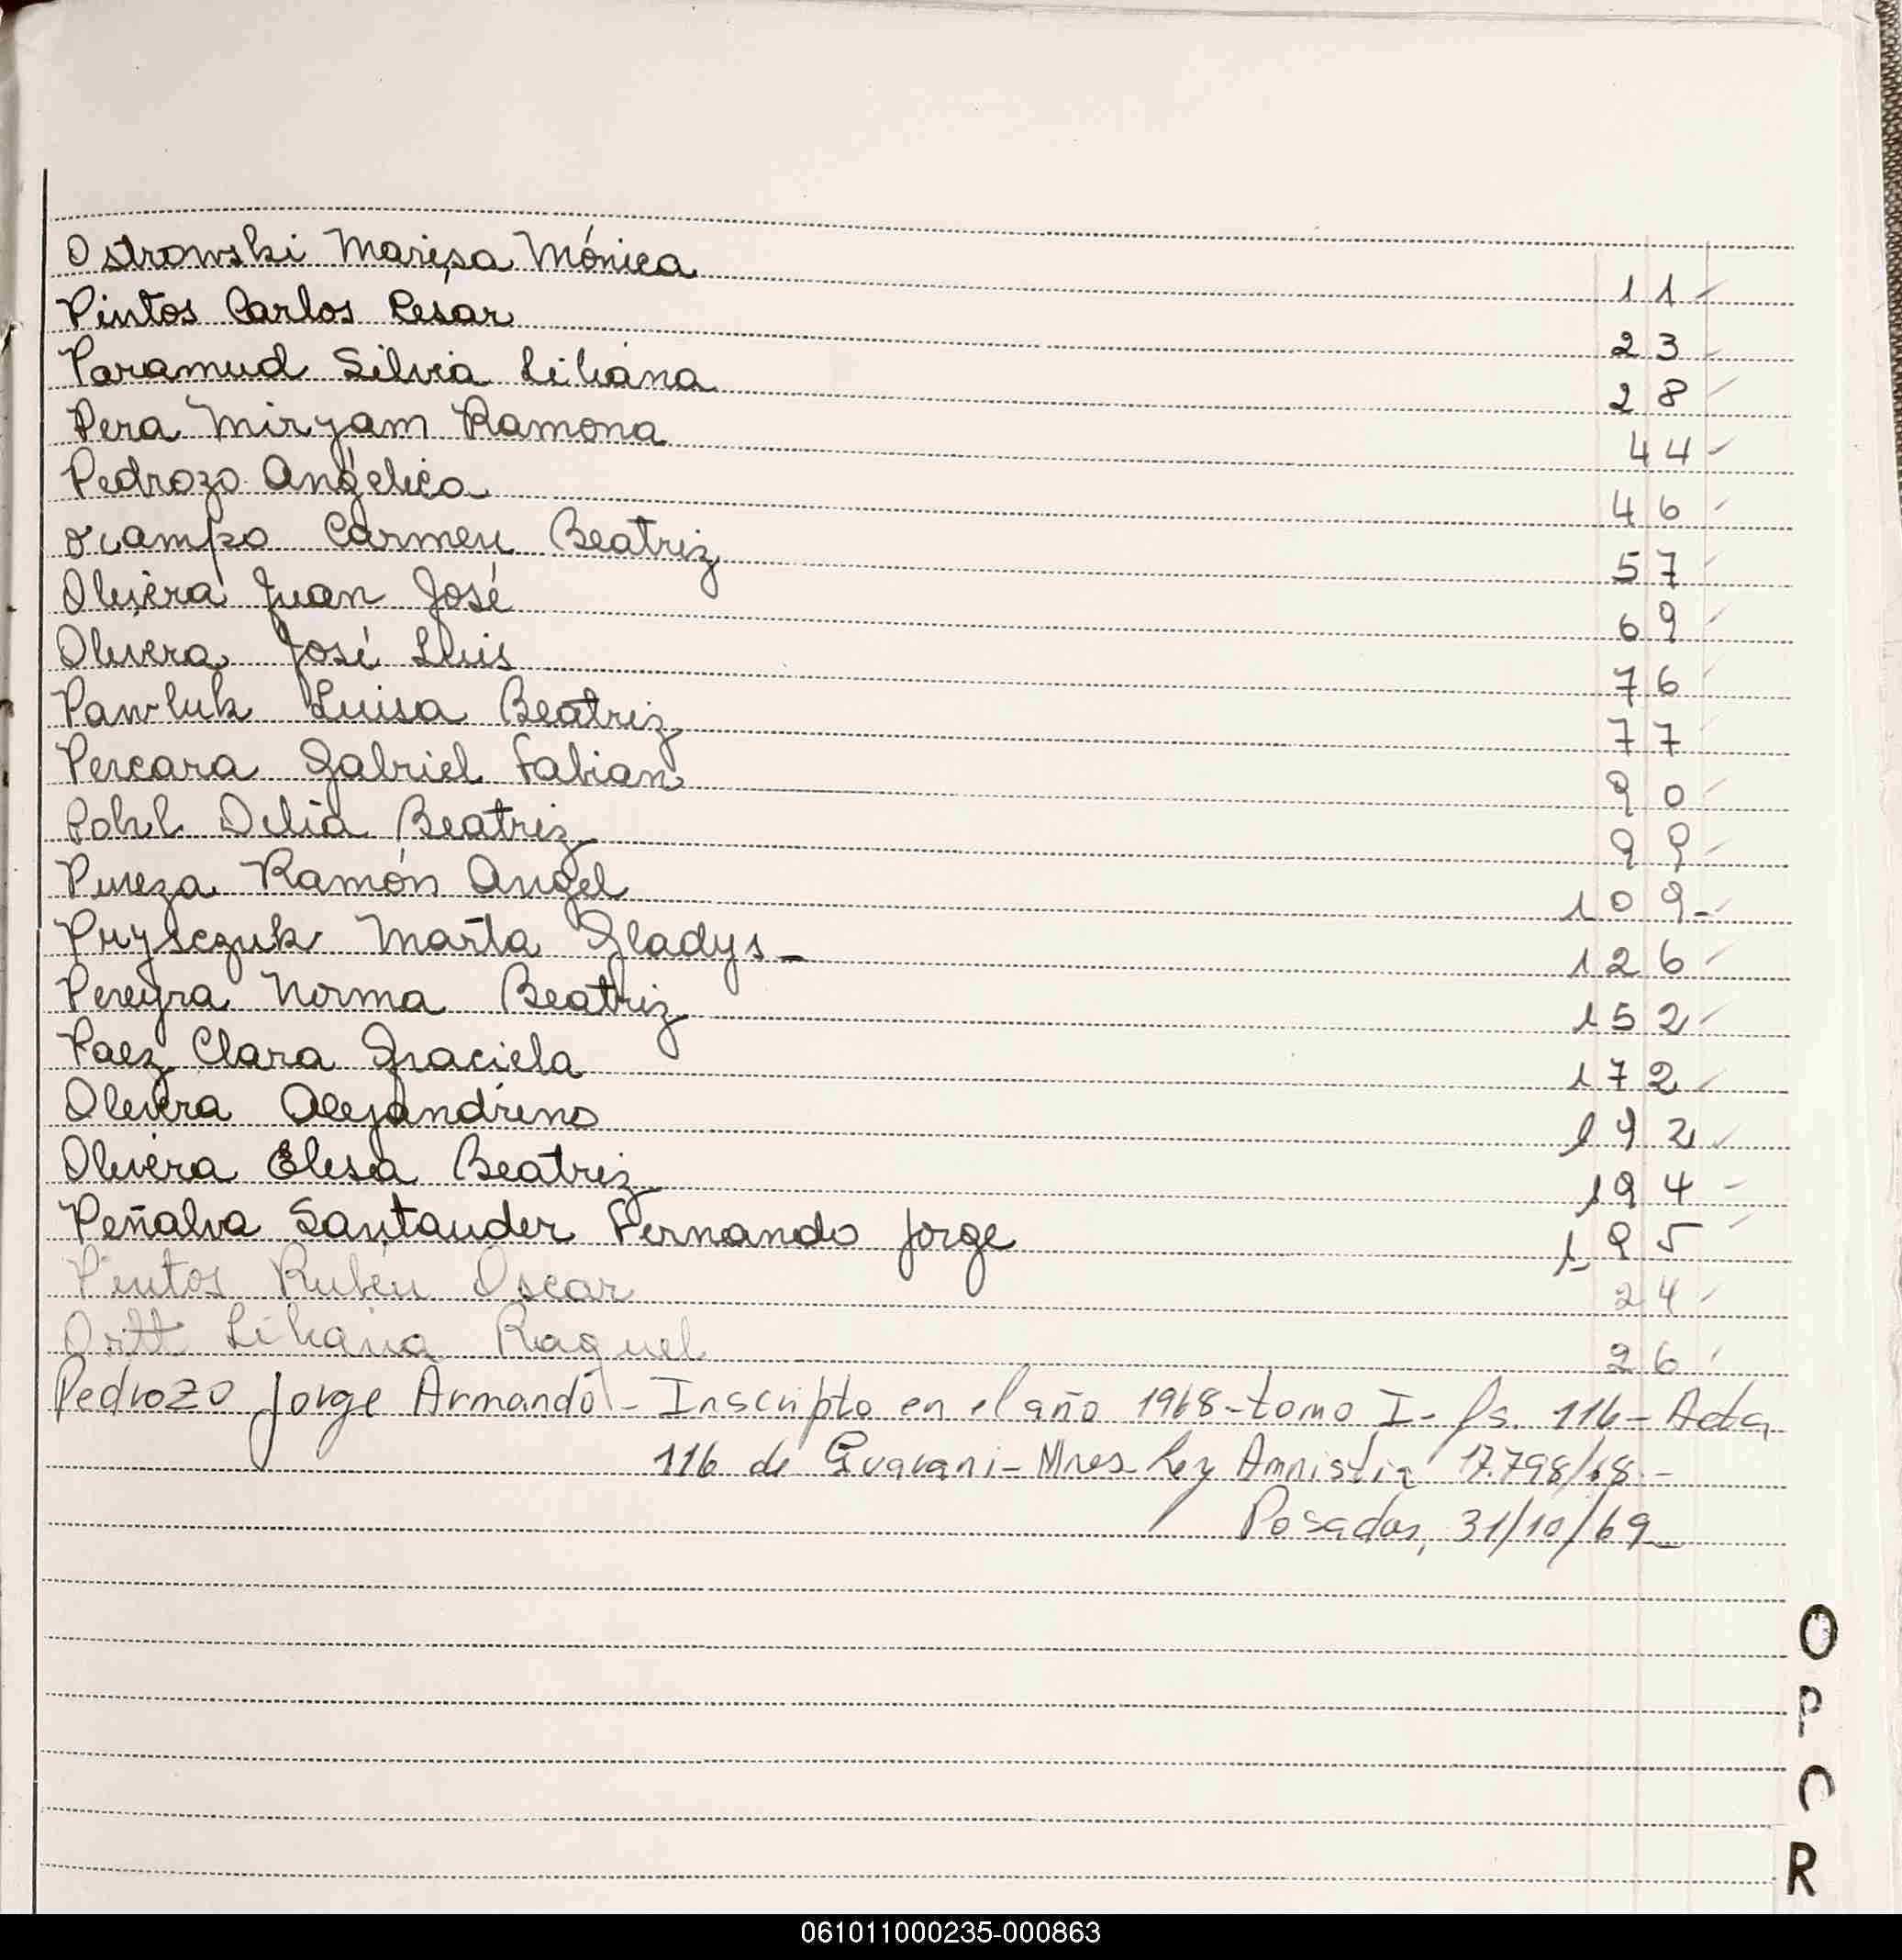 Ostrowski Marisa Mónica 11
Pintos Carlos Cesar 23
Paramud Silvia Liliana 28
Pera Miryam Ramona 44
Pedrozo Angélica 46
Ocampo Carmen Beatriz 57
Olivera Juan José 69
Olivera José Luis 76
Pawluk Luisa Beatriz 77
Percara Gabriel Fabian 90
Pohl Delia Beatriz 99
Pereza Ramón Angel 109
Pryszczuk Marta Gladys 126
Pereyra Norma Beatriz 152
Paez Clara Graciela 172
Olivera Alejandrino 192
Olivera Elisa Beatriz 194
Peñalva Santander Fernando Jorge 195
Pintos Rubén Oscar 24
Ortt Liliana Raquel 26
Pedrozo Jorge Armando - Inscripto en el año 1968 - tomo I - fs. 116 - Acta
116 de Guarani - Mnes - Ley Amnistia 17.798/68 -
Posadas, 31/10/69
O
P
C
R
061011000235-000863